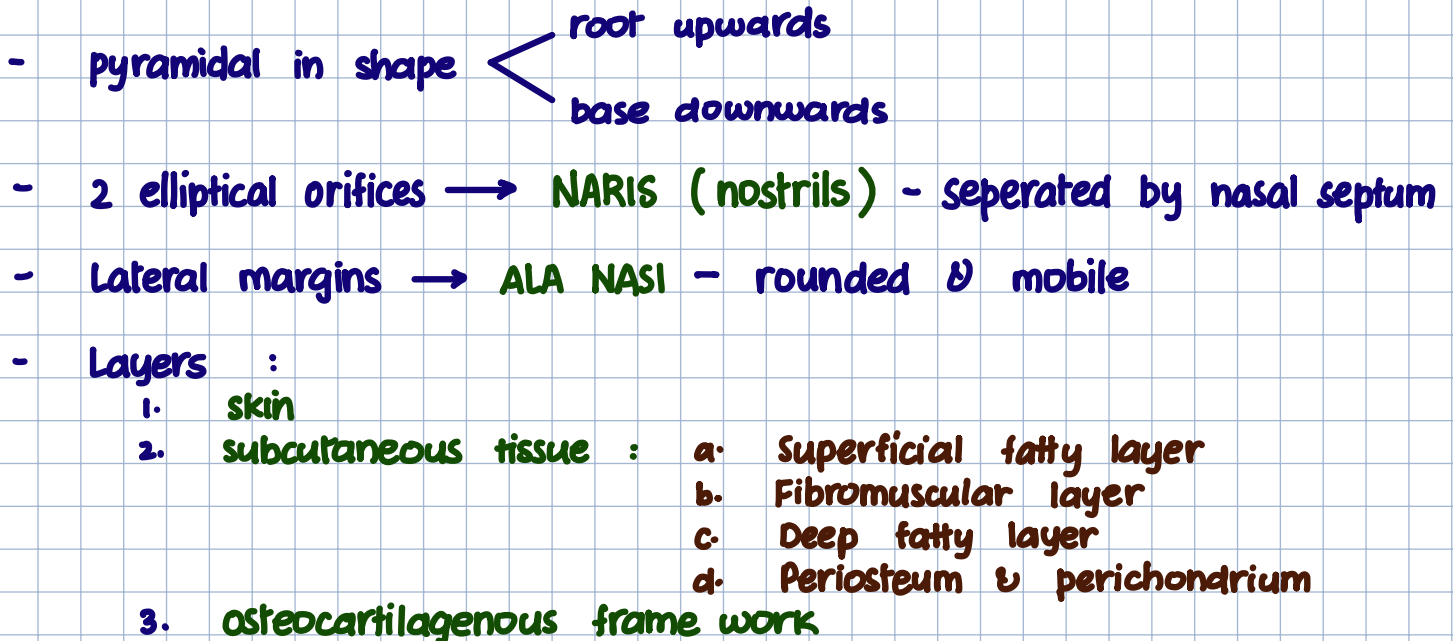 root upwards
- pyramidal in shape
base downwards
- 2 elliptical orifices → NARIS (nostrils) - seperated by nasal septum
- Lateral margins → ALA NASI - rounded & mobile
- Layers :
1. skin
2. subcutaneous tissue : a. Superficial fatty layer
b. Fibromuscular layer
c. Deep fatty layer
d. Periosteum & perichondrium
3. osteocartilagenous frame work